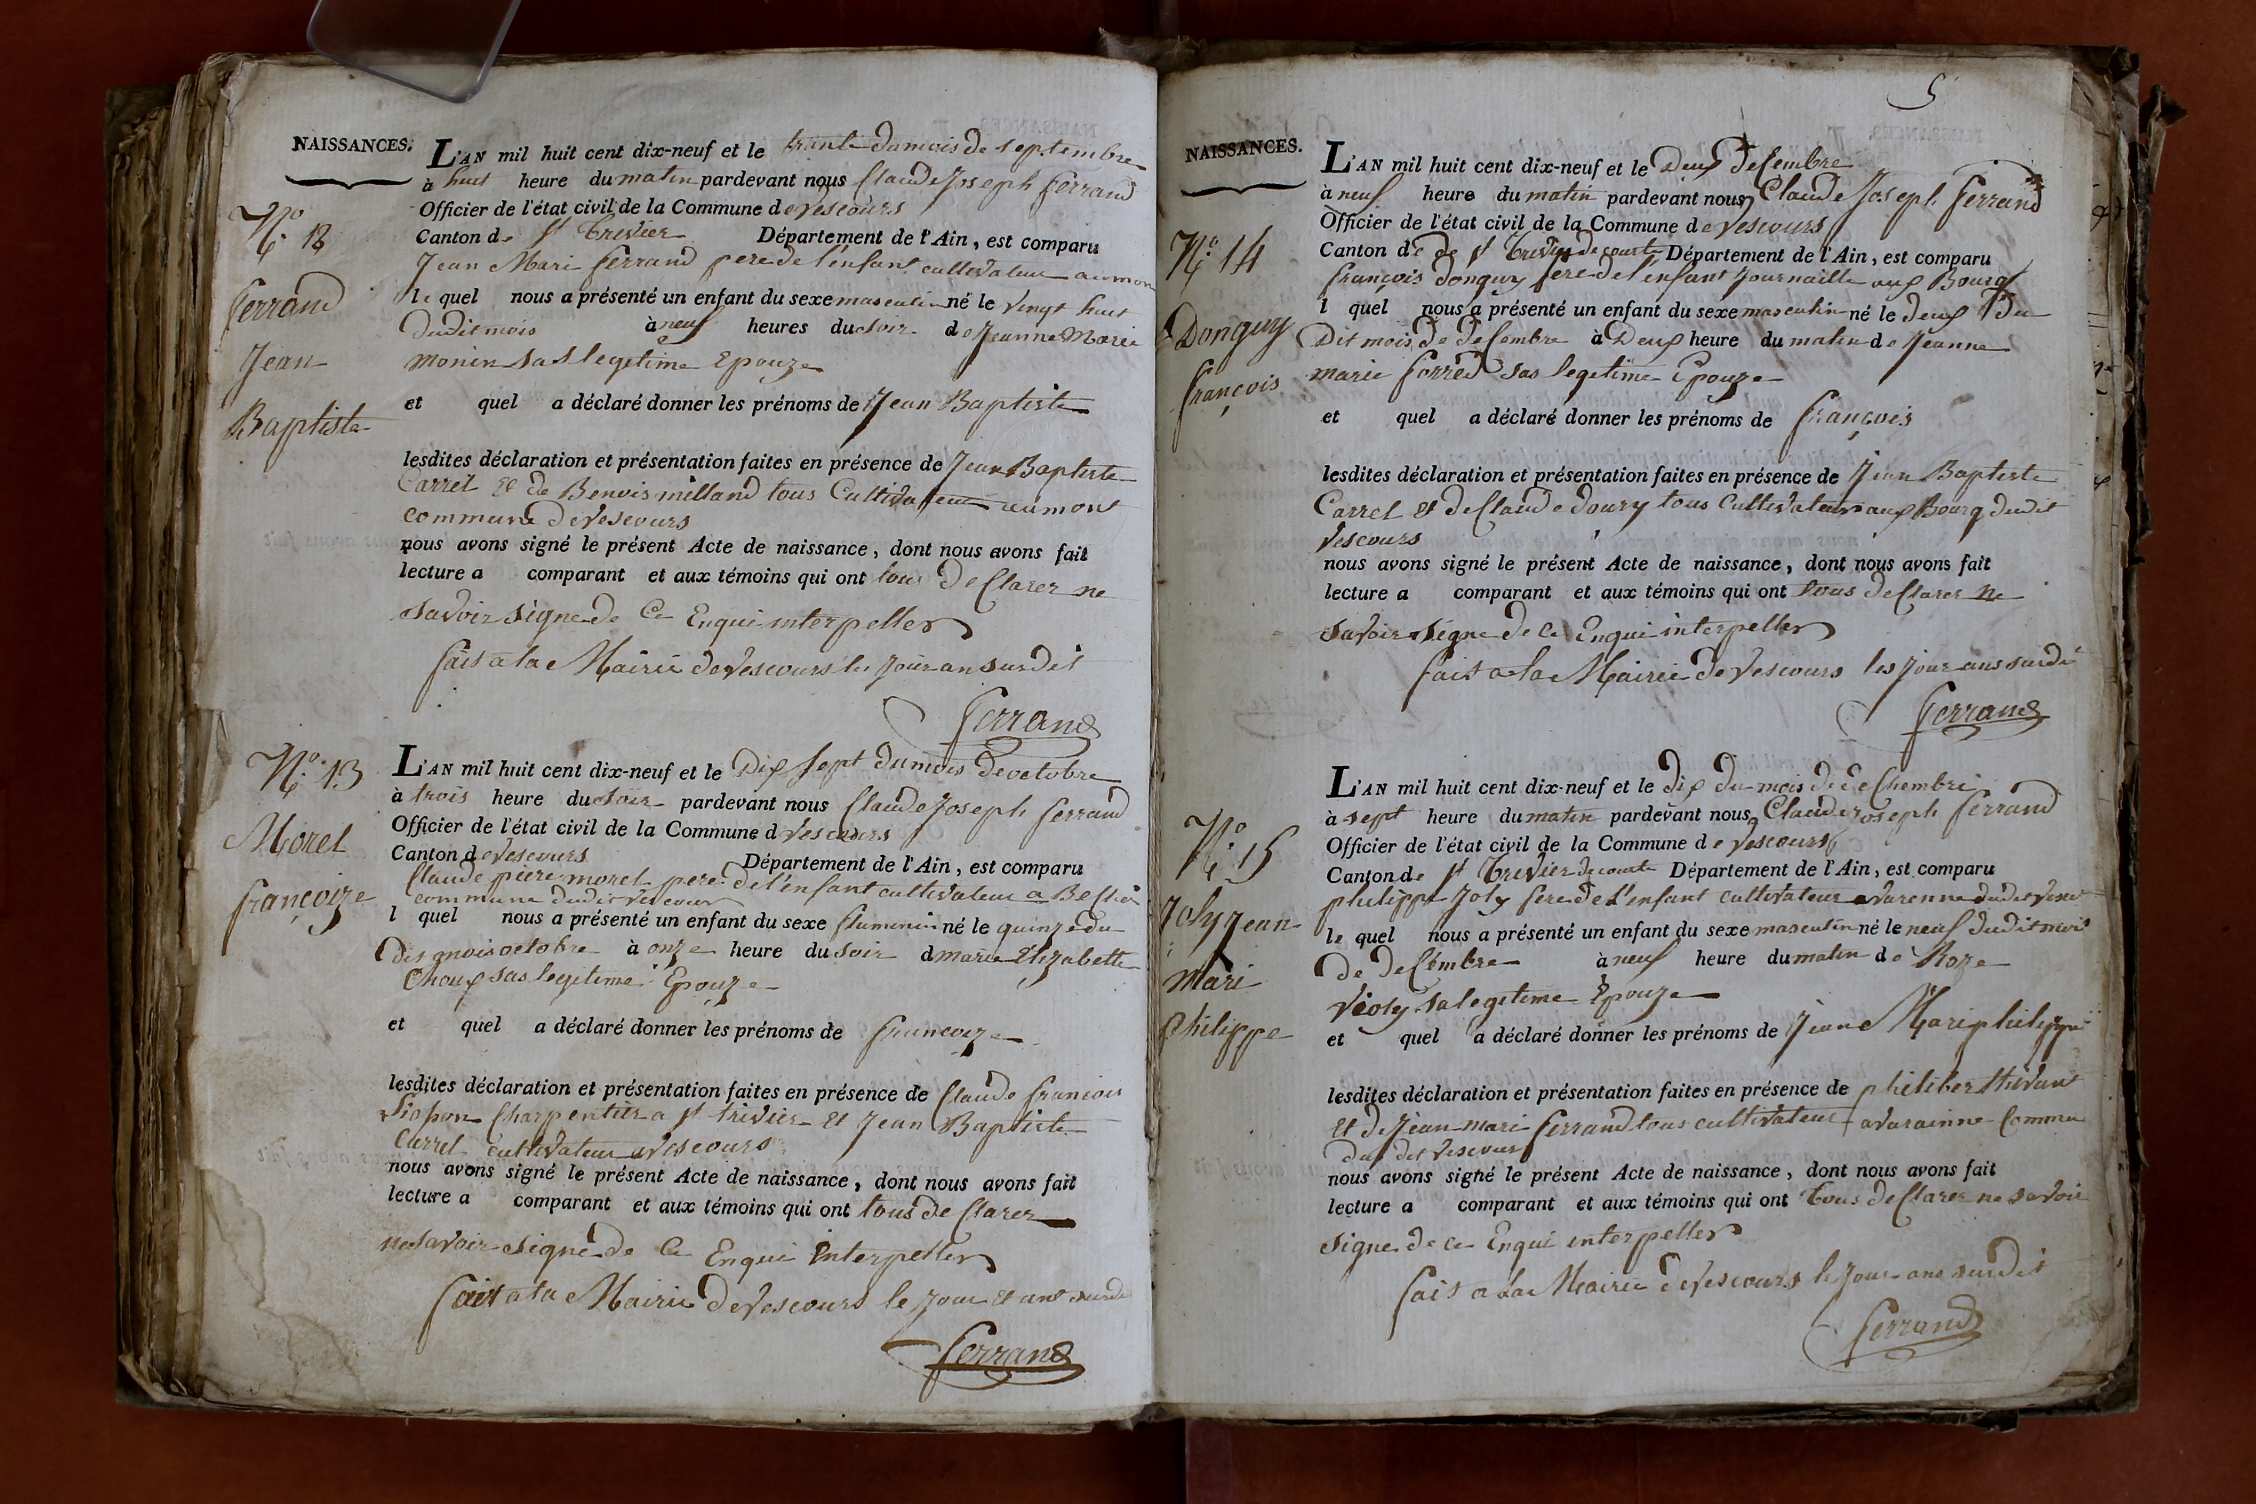 NAISSANCES.
L'AN mil huit cent dix-neuf et le trante du mois de septembre
à huit heure du matin pardevant nous Claude Joseph ferrand
Officier de l'état civil de la Commune de vescours
Canton de st trivier Département de l'Ain, est comparu
Jean Mari ferrand pere de l'enfant cultivateur au mon
le quel nous a présenté un enfant du sexe masculin né le vingt huit
dudit mois à neuf heures du soir de Jeanne Marie
monin sas legitime Epouze
et quel a déclaré donner les prénoms de Jean Baptiste
lesdites déclaration et présentation faites en présence de Jean Baptiste
Carrel et de Benois milland tous Cultivateur au mont
commune de vescours
nous avons signé le présent Acte de naissance, dont nous avons fait
lecture a comparant et aux témoins qui ont tous de Clarer ne
savoir signe de Ce Enqui interpeller
fait a la Mairie de vescours les jour an surdit
ferrand
No. 12
ferrand
Jean
Baptiste
L'AN mil huit cent dix-neuf et le Dix sept du mois de octobre
à trois heure du soir pardevant nous Claude Joseph ferrand
Officier de l'état civil de la Commune d vescours
Canton de vescours Département de l'Ain, est comparu
Claude piere morel pere de l'enfant cultivateur a
commune dudit vescour
l quel nous a présenté un enfant du sexe né le quinze du
Dis mois octobre à onze heure du soir d marie Elizabette
Choux sas legitime Epouze
et quel a déclaré donner les prénoms de francoize
lesdites déclaration et présentation faites en présence de Claude francois
Charpentier a st trivier et Jean Baptiste
Carrel cultivateur a vescours
nous avons signé le présent Acte de naissance, dont nous avons fait
lecture a comparant et aux témoins qui ont tous de Clarer
ne savoir signe de Ce Enqui interpeller
fait a la Mairie de vescours le jour et ans surdi
ferrand
No. 13
Morel
françoize
5
NAISSANCES.
L'AN mil huit cent dix-neuf et le Deux deCembre
à neuf heure du matin pardevant nous Claude Joseph ferrand
Officier de l'état civil de la Commune de vescours
Canton de de st trivier de courte Département de l'Ain, est comparu
françois donguy pere de l'enfant Journaille aux Bourg
l quel nous a présenté un enfant du sexe masculin né le deux du
Dit mois de deCembre à Deux heure du matin de Jeanne
marie sas legitime Epouze
et quel a déclaré donner les prénoms de françois
lesdites déclaration et présentation faites en présence de Jean Baptiste
Carrel et de Claude doury tous Cultivateur aux Bourg dudit
vescours
nous avons signé le présent Acte de naissance, dont nous avons fait
lecture a comparant et aux témoins qui ont tous de Clarer ne
savoir signe de Ce Enqui interpeller
fait a la Mairie de vescours les jour ans surdi
ferrand
No. 14
Donguy
françois
L'AN mil huit cent dix-neuf et le dix du mois de deChembre
à sept heure du matin pardevant nous Claude Joseph ferrand
Officier de l'état civil de la Commune de vescours
Canton de st trivier de courte Département de l'Ain, est comparu
philippe Joly pere de l'enfant cultivateur a varenne dudit
le quel nous a présenté un enfant du sexe masculin né le neuf dudit mois
de deCembre à neuf heure du matin de Roze
violy sa legitime Epouze
et quel a déclaré donner les prénoms de Jean Mari philippe
lesdites déclaration et présentation faites en présence de
et de Jean mari ferrand tous cultivateur a varainne Commu
vescours
nous avons signé le présent Acte de naissance, dont nous avons fait
lecture a comparant et aux témoins qui ont tous de Clarer ne savoir
signe de ce Enqui interpeller
fait a la Mairie de vescours le jour ans surdit
ferrand
No. 15
Joly jean
Mari
philippe